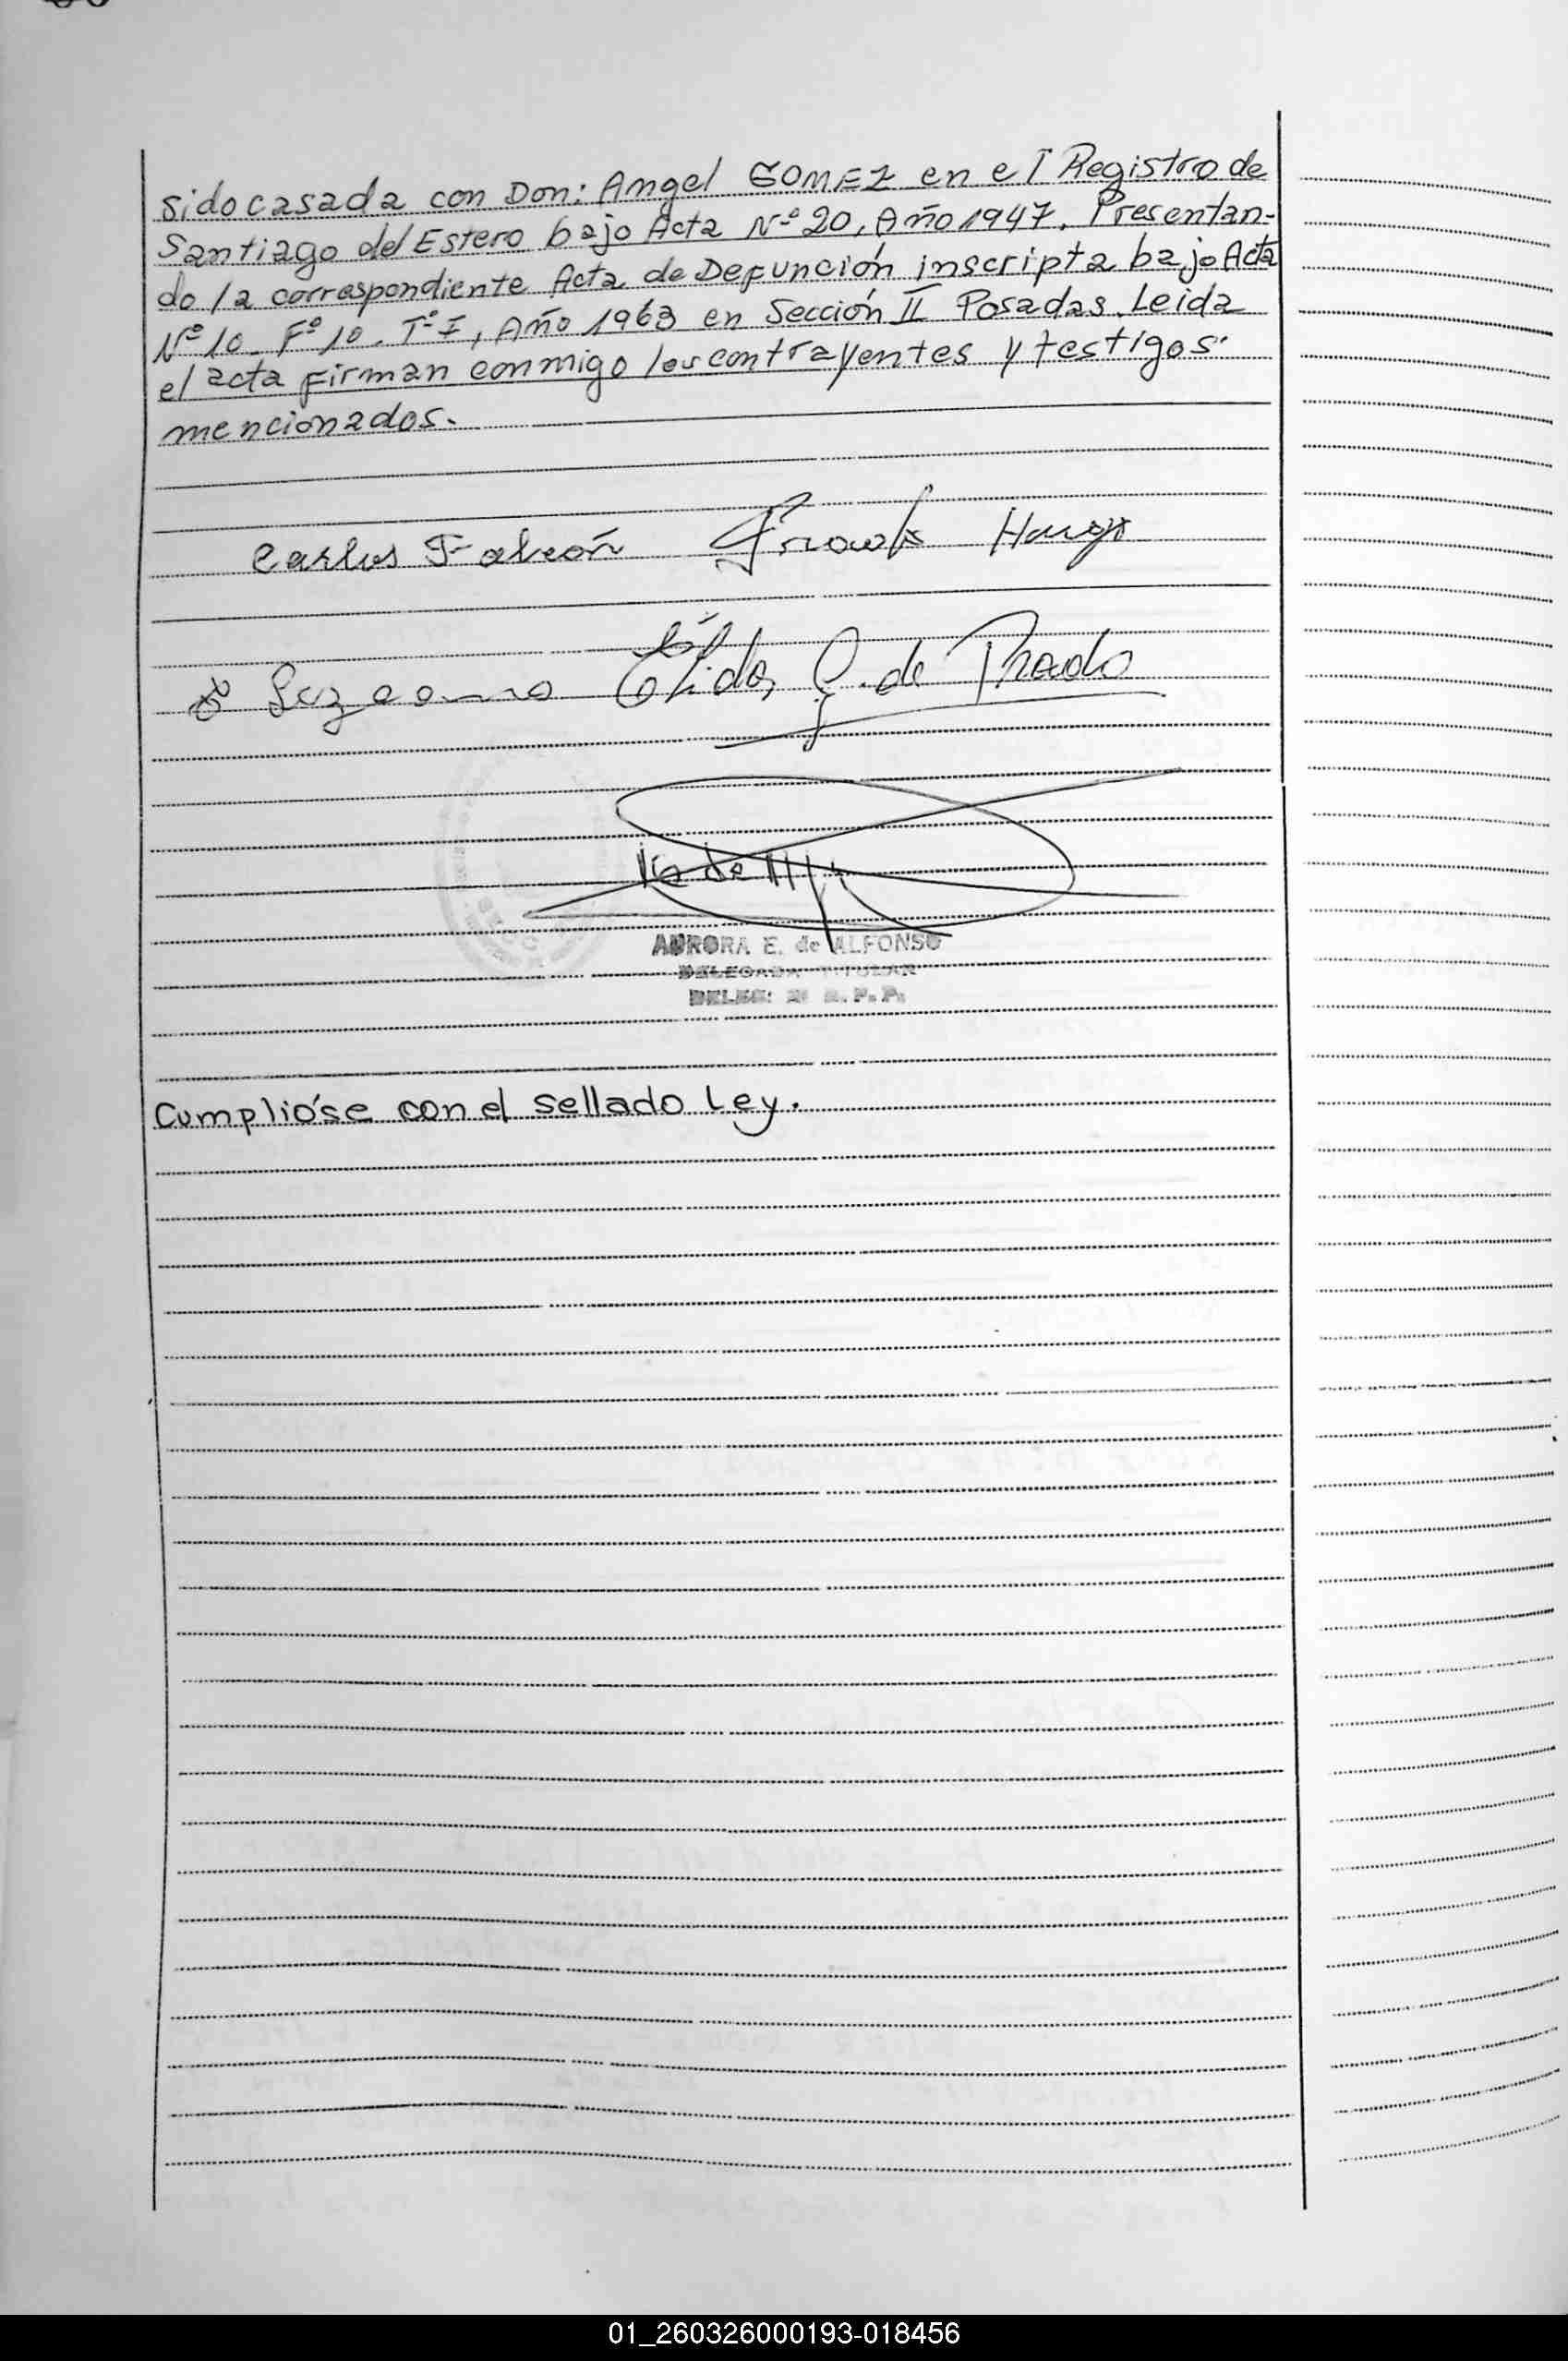 sido casada con Don: Angel GOMEZ en el Registro de
Santiago del Estero bajo Acta Nº 20, Año 1947. Presentan-
do la correspondiente Acta de Defunción inscripta bajo Acta
Nº 10. Fº 10. Tº I, Año 1963 en Sección II Posadas. Leida
el acta firman conmigo los contrayentes y testigos
mencionados.
Carlos Falcón
Elida G. de Prado
AURORA E. de ALFONSO
DELEGADA TITULAR
Cumplióse con el sellado Ley.
01_260326000193-018456